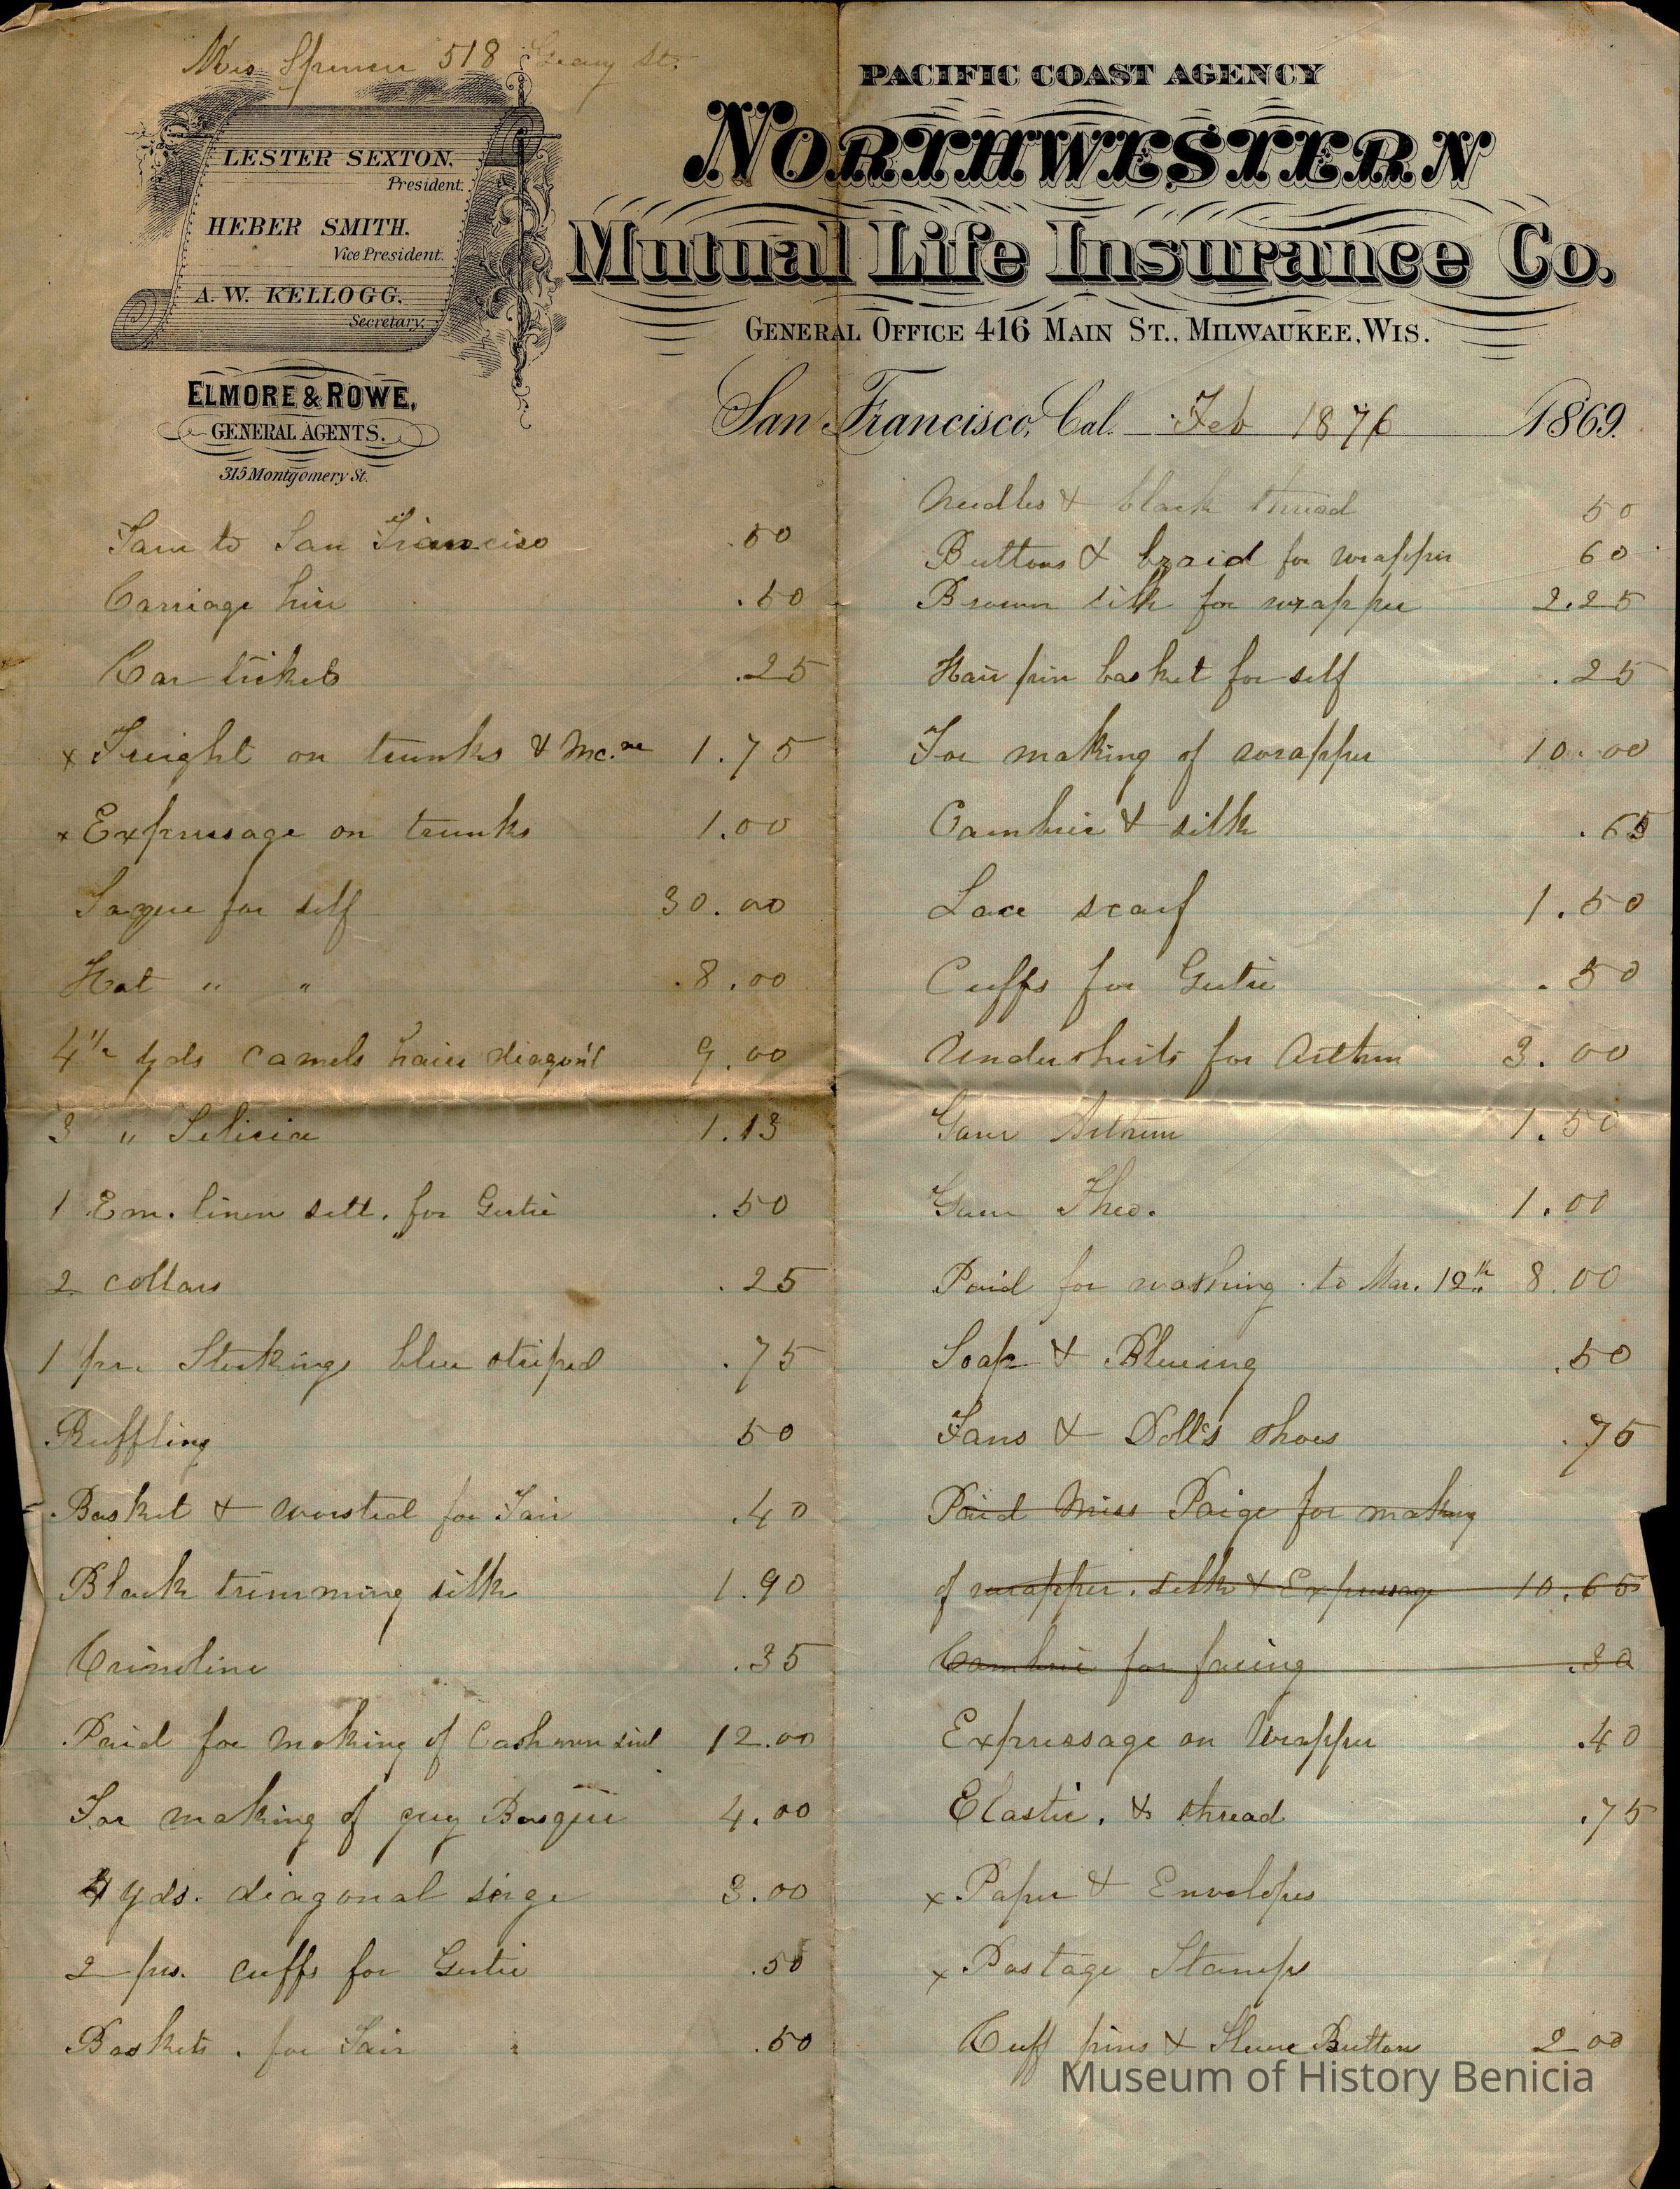 Mrs. Spencer 518 Geary St.
LESTER SEXTON,
President.
HEBER SMITH.
Vice President.
A. W. KELLOGG,
Secretary.
ELMORE & ROWE,
GENERAL AGENTS.
315 Montgomery St.
PACIFIC COAST AGENCY
NORTHWESTERN
Mutual Life Insurance Co.
GENERAL OFFICE 416 MAIN ST., MILWAUKEE, WIS.
San Francisco, Cal. Feb 1876 1869.
Fare to San Francisco .50
Carriage hire .50
Car tickets .25
x Freight on trunks & Mc.ne 1.75
x Expressage on trunks 1.00
Sacque for self 30.00
Hat " " 8.00
4 1/2 yds camels hair diagon'l 9.00
3 " Silicia 1.13
1 Em. linen sett. for Gertie .50
2 collars .25
1 pr. Stockings blue striped .75
Ruffling 50
Basket & worsted for Fair .40
Black trimming silk 1.90
Crinoline .35
Paid for making of Cashmere 12.00
For making of grey Basque 4.00
4 yds. diagonal serge 3.00
2 prs. cuffs for Gertie .50
Baskets. for Fair .50
Needles & black thread 50
Buttons & braid for wrapper 60
Brown silk for wrapper 2.25
Hair pin basket for self .25
For making of wrapper 10.00
Cambric & silk .65
Lace scarf 1.50
Cuffs for Gertie .50
Undershirts for Arthur 3.00
Gave Arthur 1.50
Gave Theo. 1.00
Paid for washing to Mar. 12th 8.00
Soap & Blueing .50
Fans & Doll's shoes .75
Paid Miss Paige for making
of wrapper. silk & Expressage 10.65
Cambric for facing .30
Expressage on Wrapper .40
Elastic. & thread .75
x Paper & Envelopes
x Postage Stamps
Cuff pins & Sleeve Buttons 2.00
Museum of History Benicia